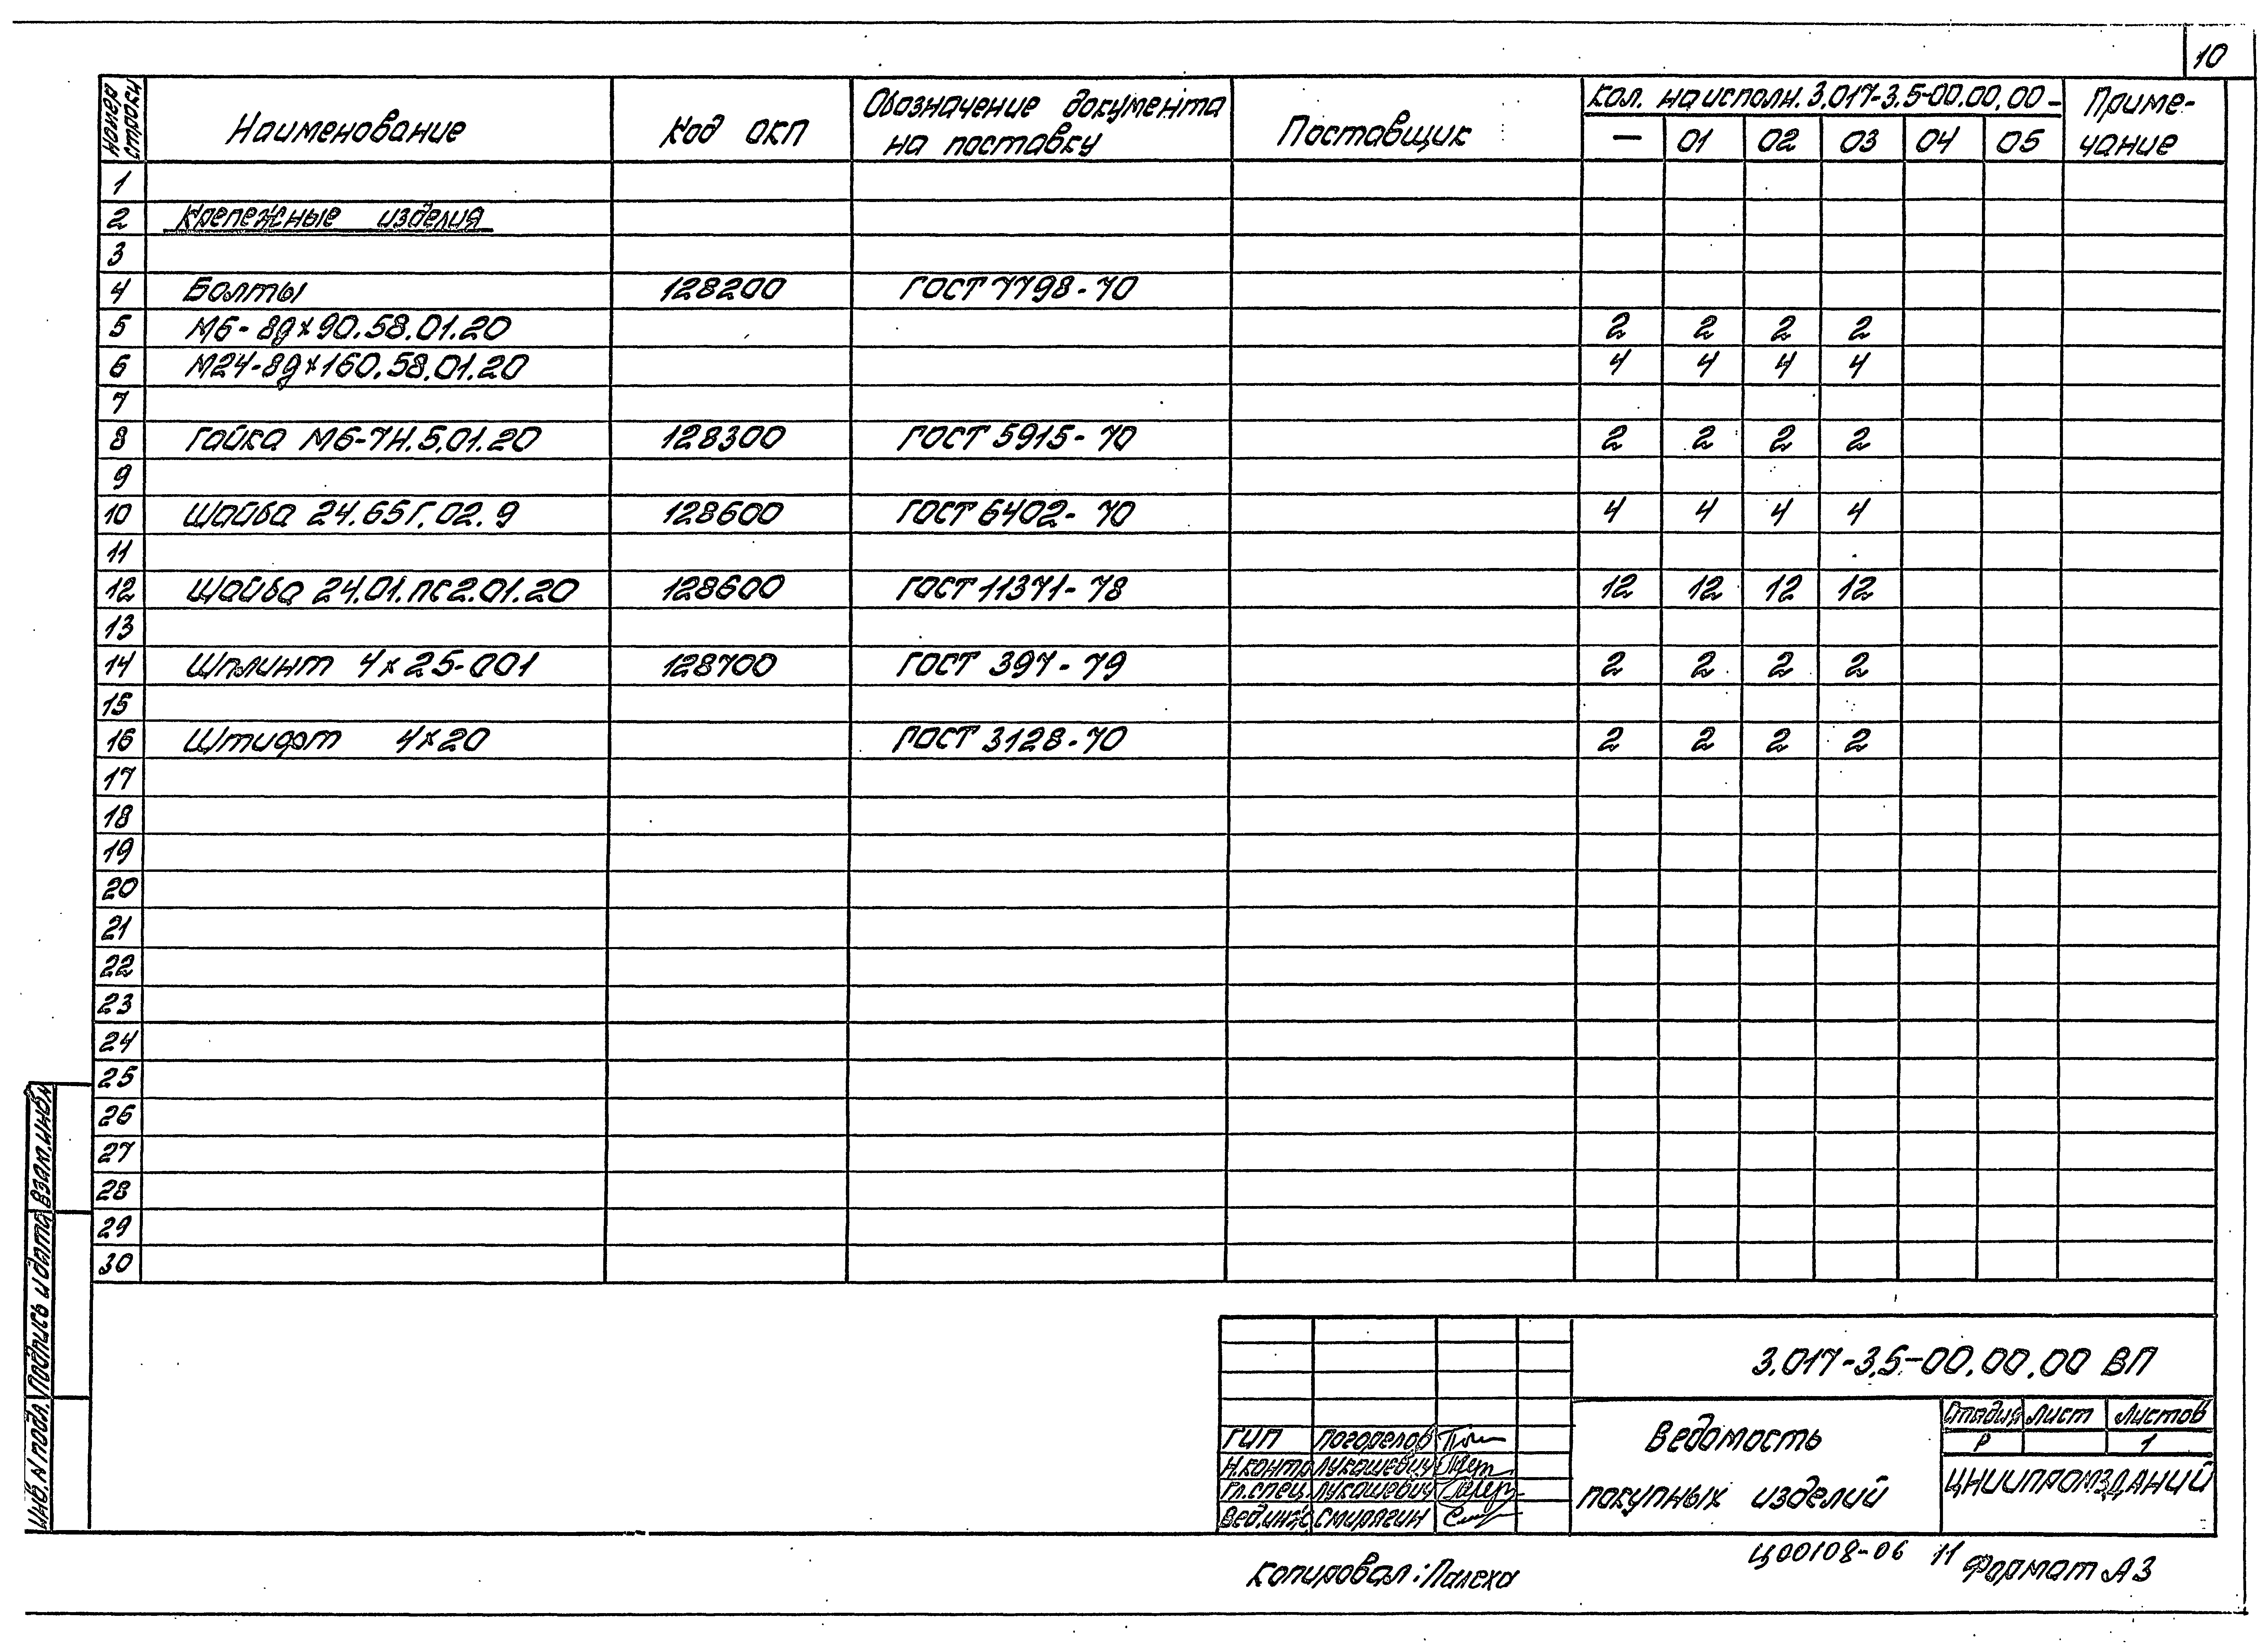 10
Номер строки
Наименование
Код ОКП
Обозначение документа
на поставку
Поставщик
Кол. на исполн. 3.017-3.5-00.00.00-
— 01 02 03 04 05
Приме-
чание
1
2 Крепежные изделия
3
4 Болты 128200 ГОСТ 7798-70
5 М6-8g×90.58.01.20 2 2 2 2
6 М24-8g×160.58.01.20 4 4 4 4
7
8 Гайка М6-7Н.5.01.20 128300 ГОСТ 5915-70 2 2 2 2
9
10 Шайба 24.65Г.02.9 128600 ГОСТ 6402-70 4 4 4 4
11
12 Шайба 24.01.пс2.01.20 128600 ГОСТ 11371-78 12 12 12 12
13
14 Шплинт 4×25-001 128700 ГОСТ 397-79 2 2 2 2
15
16 Штифт 4×20 ГОСТ 3128-70 2 2 2 2
17
18
19
20
21
22
23
24
25
26
27
28
29
30
Инв. N подл. Подпись и дата Взам. инв. N
3.017-3.5-00.00.00 ВП
ГИП Погорелов
Н.контр Лукашевич
Гл.спец. Лукашевич
Вед.инж Смирягин
Ведомость
покупных изделий
Стадия Лист Листов
Р 1
ЦНИИПРОМЗДАНИЙ
Копировал: Палеха
Ц00108-06 11
Формат А3